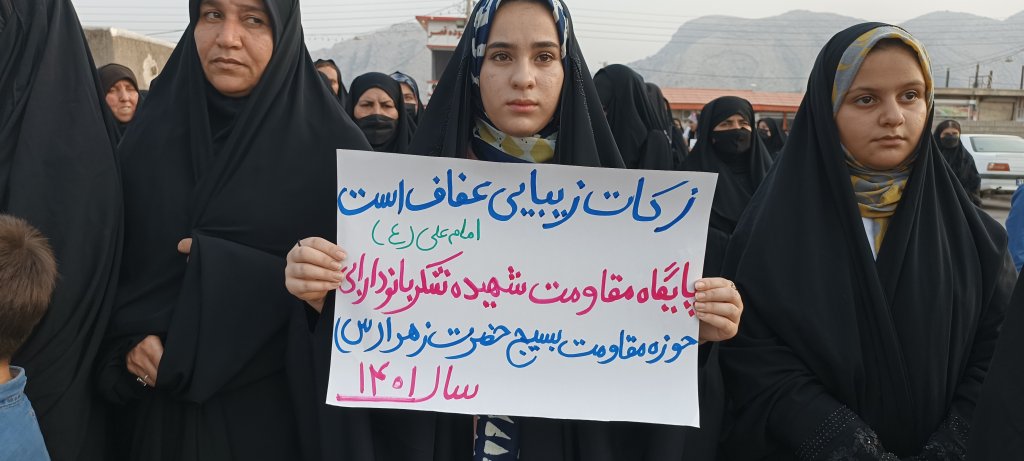 زکات زیبایی عفاف است
امام علی (ع)
پایگاه مقاومت شهیده شکر بانو دارابی
حوزه مقاومت بسیج حضرت زهرا (س)
سال ۱۴۰۱